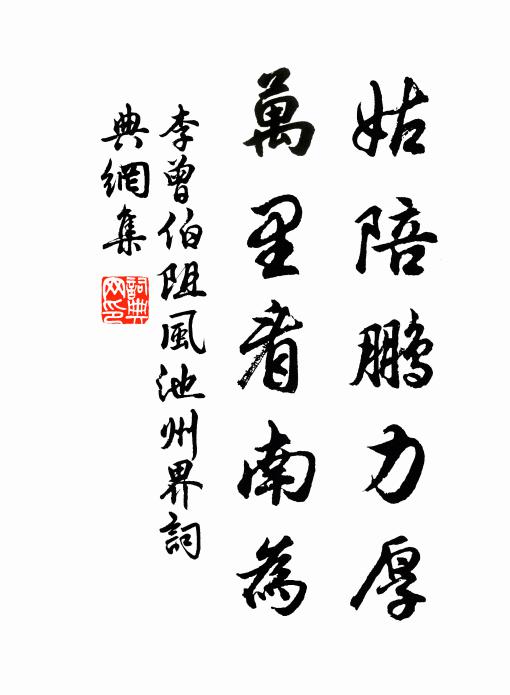 姑陪鵬力厚
萬里看南為
李曾伯阻風池州界詞
典網集
詞典網印